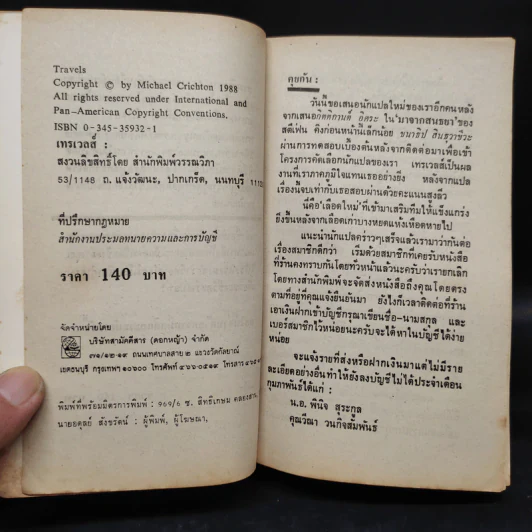 Travels
Copyright © by Michael Crichton 1988
All rights reserved under International and
Pan-American Copyright Conventions.
ISBN 0-345-35932-1
เทรเวลส์ :
สงวนลิขสิทธิ์โดย สำนักพิมพ์วรรณวิภา
53/1148 ถ. แจ้งวัฒนะ, ปากเกร็ด, นนทบุรี
ที่ปรึกษากฎหมาย
สำนักงานประมอทนายความและการบัญชี
ราคา 140 บาท
จัดจำหน่ายโดย
บริษัทสามัคคีสาร (ดอกหญ้า) จำกัด
๗๑/๑๒-๑๓ ถนนเทศบาลสาย ๒ แขวงวัดกัลยาณ์
เขตธนบุรี กรุงเทพฯ ๑๐๖๐๐ โทรศัพท์ โทรสาร
พิมพ์ที่พร้อมมิตรการพิมพ์ : 969/6 ซ. สิทธิเกษม
นายอดุลย์ สังขรัตน์ : ผู้พิมพ์, ผู้โฆษณา,
คุยกัน :
วันนี้ขอเสนอนักแปลใหม่ของเราอีกคนหลัง
จากเสนอกิตติกานต์ อิศระ ใน 'มาจากสนธยา' ของ
สตีเฟน คิงก่อนหน้านี้เล็กน้อย
ผ่านการทดสอบเบื้องต้นหลังจากติดต่อมาเพื่อเข้า
โครงการคัดเลือกนักแปลของเรา เทรเวลส์เป็นผล
งานที่เราภาคภูมิใจแทนเธออย่างยิ่ง หลังจากแปล
เรื่องนี้จบเท่ากับเธอสอบผ่านด้วยคะแนนสูงลิ่ว
นี่คือ 'เลือดใหม่' ที่เข้ามาเสริมทีมให้แข็งแกร่ง
ยิ่งขึ้นหลังจากเลือดเก่าบางหยดแห้งเหือดหายไป
แนะนำนักแปลคร่าวๆ เสร็จแล้วเรามาว่ากันต่อ
เรื่องสมาชิกดีกว่า เริ่มด้วยสมาชิกที่เคยรับหนังสือ
ที่ร้านคงทราบกันโดยทั่วหน้าแล้วนะครับว่าเรายกเลิก
โดยทางสำนักพิมพ์จะจัดส่งหนังสือถึงคุณโดยตรง
ตามที่อยู่ที่คุณแจ้งยืนยันมา ยังไงก็เวลาติดต่อที่ร้าน
เอาเงินฝากเข้าบัญชีกรุณาเขียนชื่อ-นามสกุล และ
เบอร์สมาชิกไว้หน่อยนะครับจะได้หาในบัญชีได้ง่าย
หน่อย
จะแจ้งรายที่ส่งหรือฝากเงินมาแต่ไม่มีราย
ละเอียดอย่างอื่นทำให้ยังลงบัญชีไม่ได้ประจำเดือน
กุมภาพันธ์ได้แก่ :
น.อ. พินิจ สุระกูล
คุณวีณา วนกิจสัมพันธ์